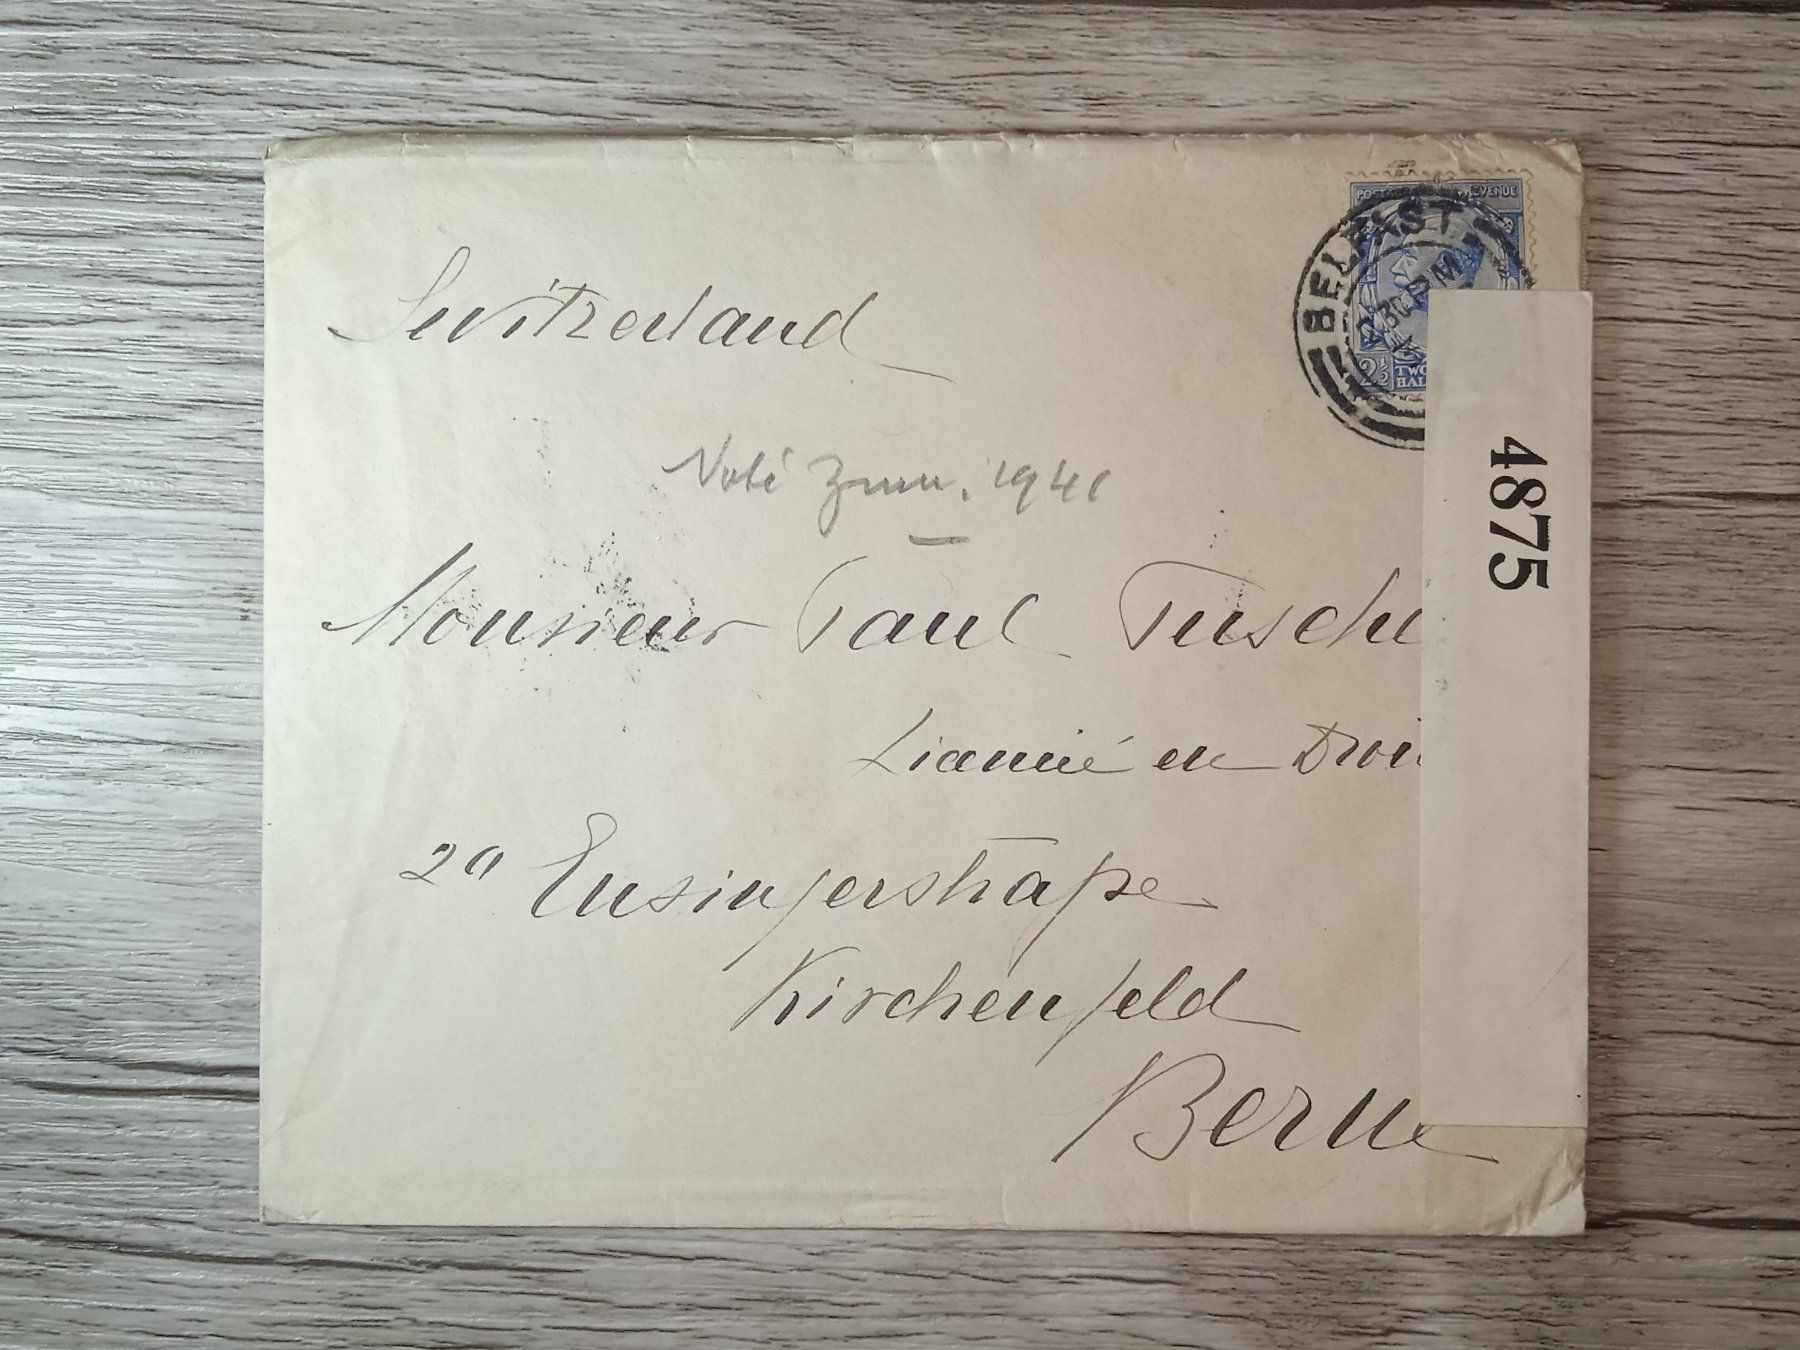 POSTAGE REVENUE
BELFAST
2.30 PM
2½ TWO
HAL
Switzerland
1941
4875
Monsieur Paul Tusche
Licencié en Droit
2a Ensingerstraße
Kirchenfeld
Berne